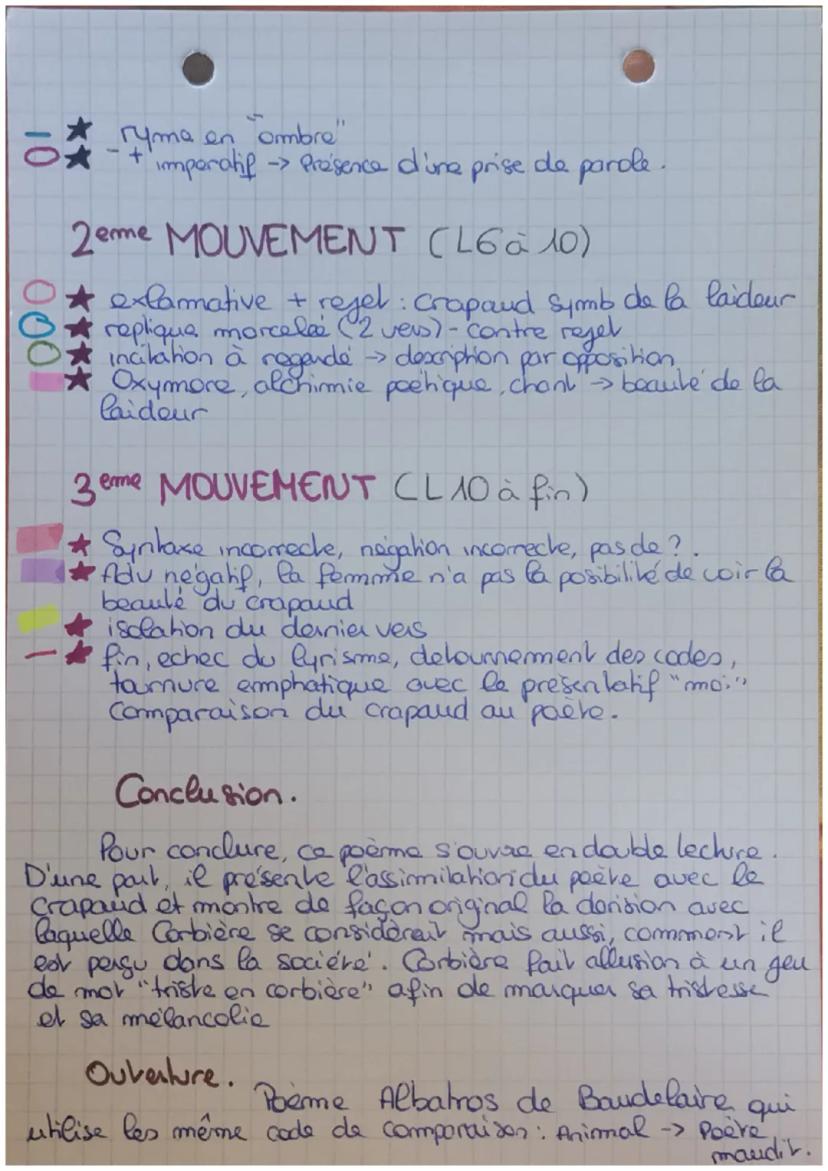 ryme en "ombre"
- + imperatif -> Présence d'une prise de parole.
2eme MOUVEMENT (L6 à 10)
exlamative + rejet : crapaud symb de la laideur
replique morcelée (2 vers) - contre rejet
incitation à regardé -> description par opposition
Oxymore, alchimie poétique, chant -> beauté de la
laideur
3eme MOUVEMENT (L10 à fin)
Syntaxe incorrecte, négation incorrecte, pas de ?.
Adv négatif, la femme n'a pas la possibilité de voir la
beauté du crapaud
isolation du dernier vers
fin, echec du lyrisme, detournement des codes,
tournure emphatique avec le présentatif "moi"
Comparaison du crapaud au poète.
Conclusion.
Pour conclure, ce poème s'ouvre en double lecture.
D'une part, il présente l'assimilation du poète avec le
crapaud et montre de façon original la dérision avec
laquelle Corbière se considérait mais aussi, comment il
est perçu dans la société. Corbière fait allusion à un jeu
de mot "triste en corbière" afin de marquer sa tristesse
et sa mélancolie
Ouverture.
Poème Albatros de Baudelaire qui
utilise les même code de comparaison : Animal -> Poète
maudit.